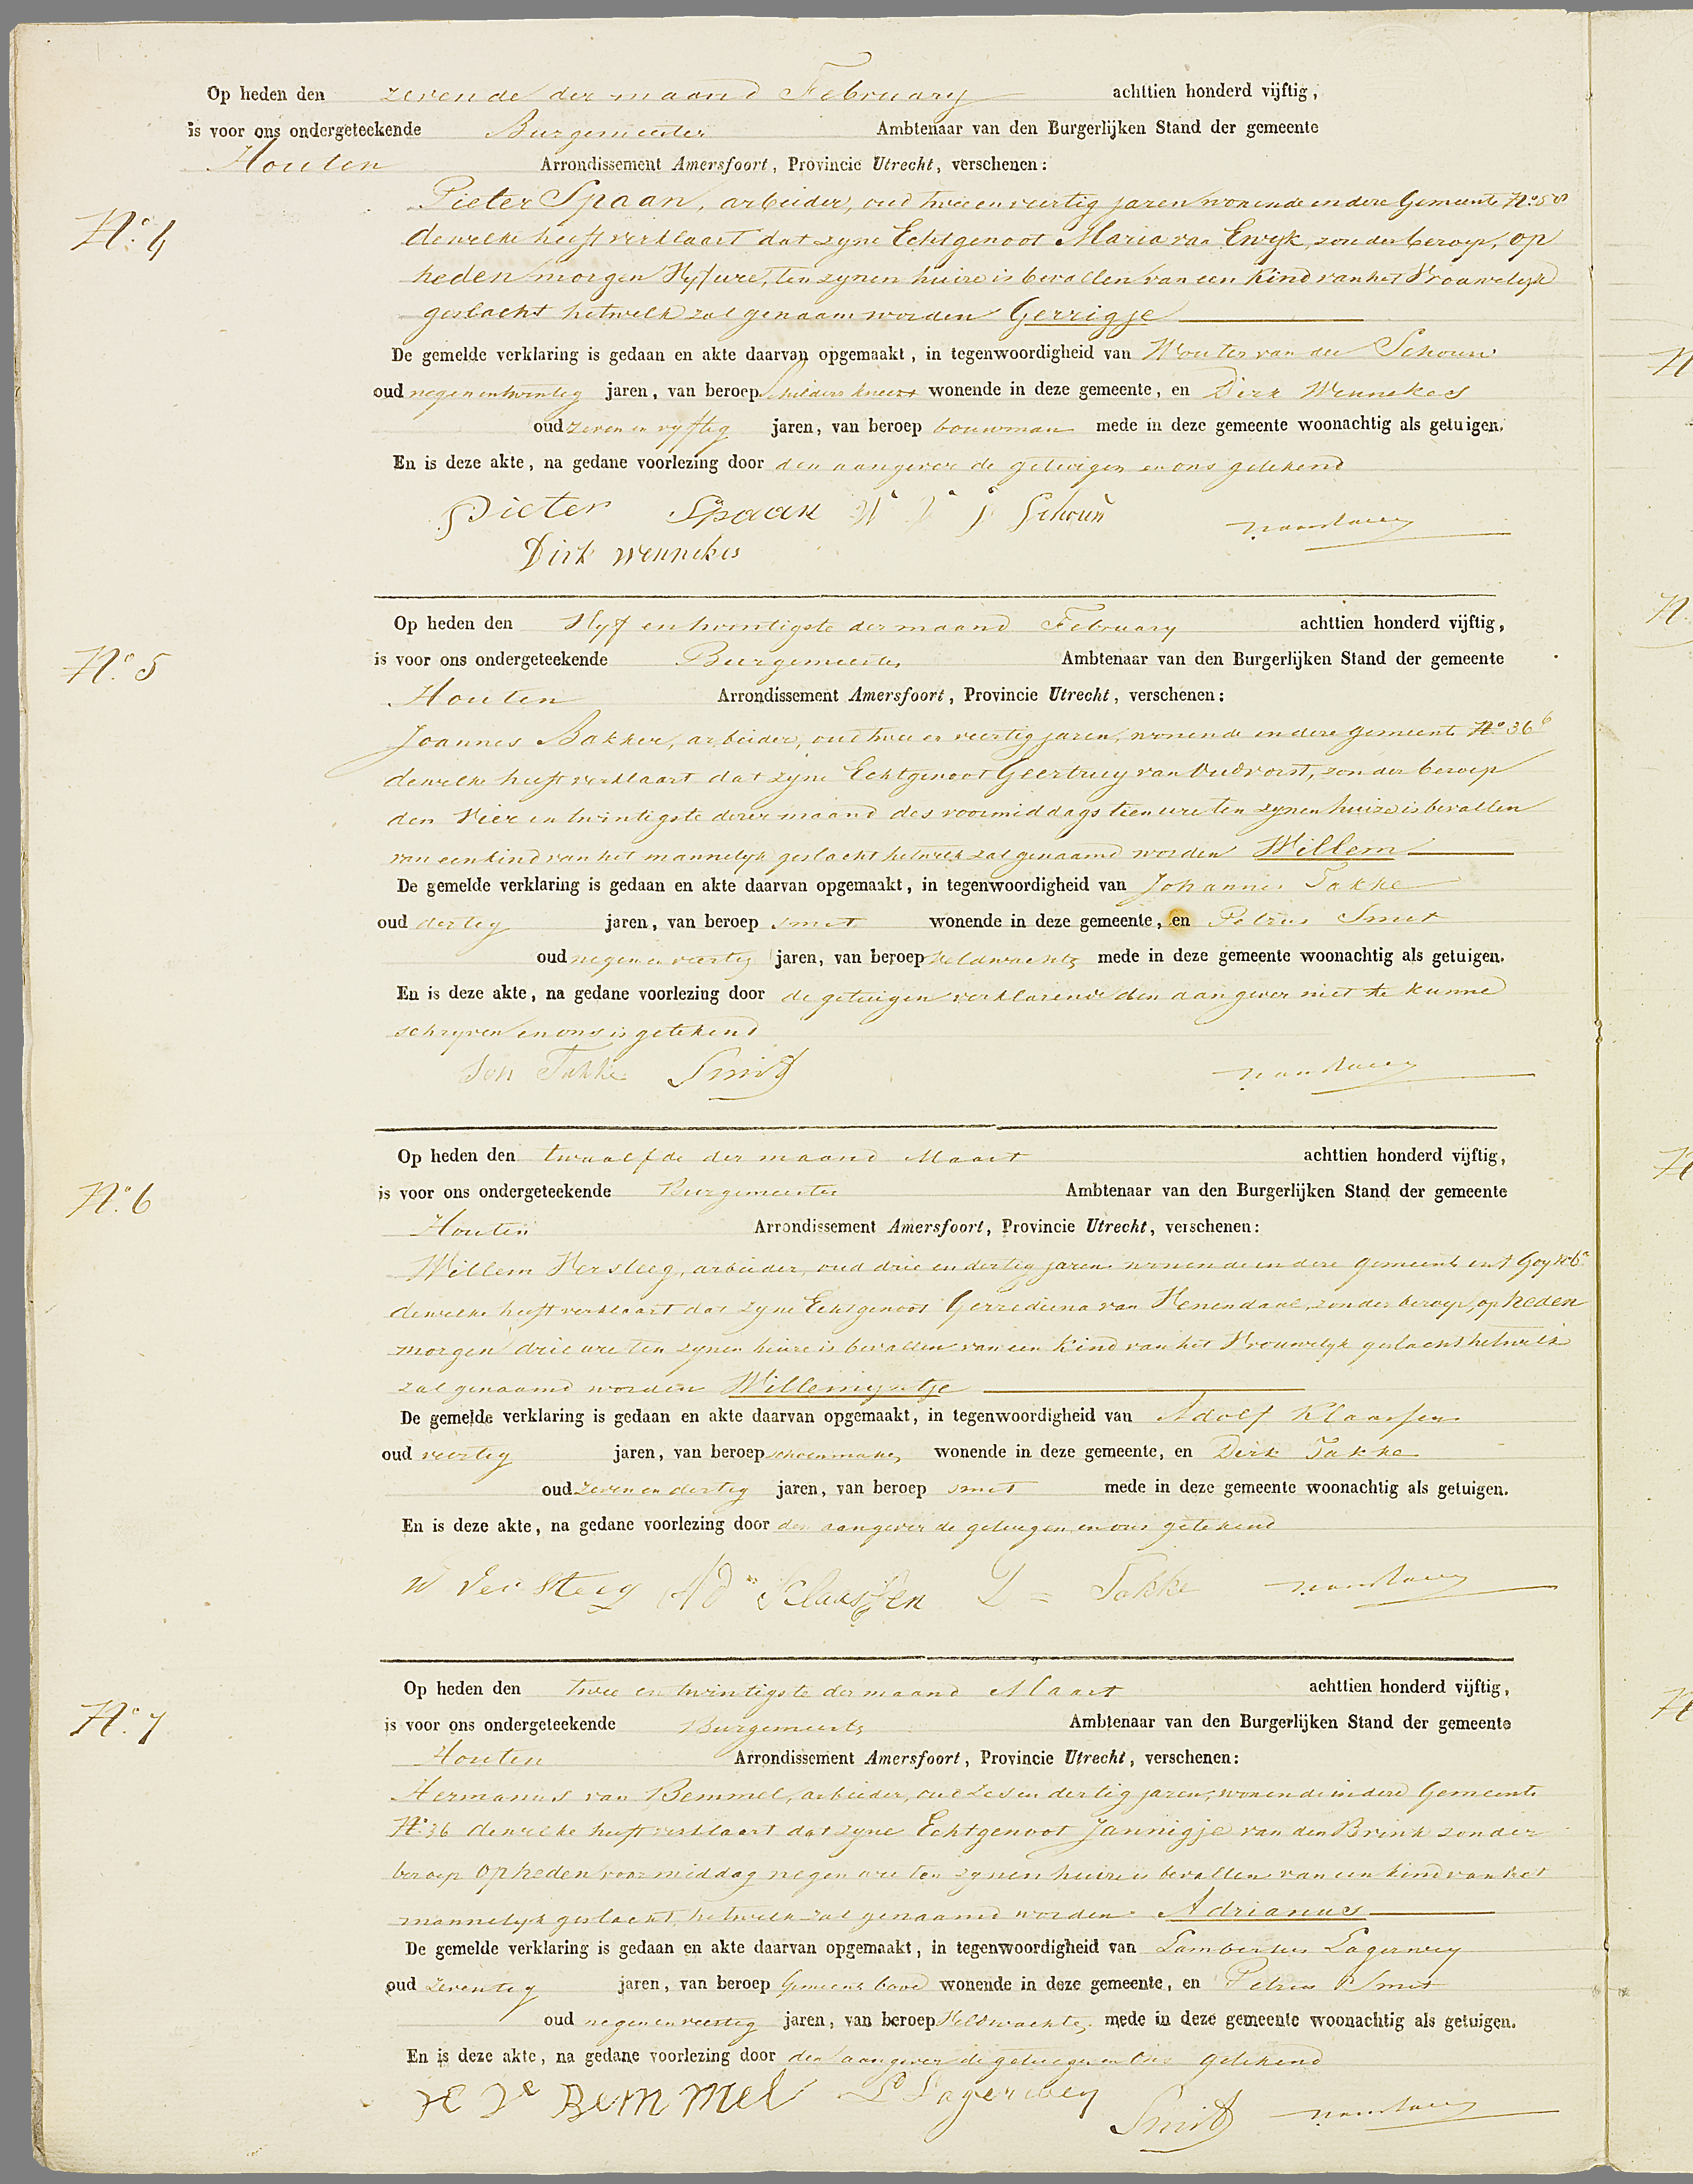 Op heden den zevende der maand February achttien honderd vijftig,
is voor ons ondergeteekende Burgemeester Ambtenaar van den Burgerlijken Stand der gemeente
Houten Arrondissement Amersfoort, Provincie Utrecht, verschenen:
Pieter Spaan, arbeider, oud twee en veertig jaren wonende in deze Gemeente No. 58
No. 4
dewelke heeft verklaart dat zyne Echtgenoot Maria van Ewyk, zonder beroep, op
heden morgen Vyf ure, ten zynen huize is bevallen van een Kind van het Vrouwelyk
geslacht hetwelk zal genaam worden Gerrigje
De gemelde verklaring is gedaan en akte daarvan opgemaakt, in tegenwoordigheid van Wouter van der Schouw
oud negen en twintig jaren, van beroep schilders knecht wonende in deze gemeente, en Dirk Wennekes
oud zeven en vyftig jaren, van beroep bouwman mede in deze gemeente woonachtig als getuigen.
En is deze akte, na gedane voorlezing door den aangever de getuigen en ons getekend
Pieter Spaan W Schouw
Dirk Wennekes
Op heden den Vyf en twintigste der maand February achttien honderd vijftig,
No. 5
is voor ons ondergeteekende Burgemeester Ambtenaar van den Burgerlijken Stand der gemeente
Houten Arrondissement Amersfoort, Provincie Utrecht, verschenen:
Joannes Bakker, arbeider, oud twee en veertig jaren, wonende in deze gemeente No. 36 b
dewelke heeft verklaart dat zyne Echtgenoot Geertruy van Oudvorst, zonder beroep
den Vier en twintigste dezer maand des voormiddags tien ure ten zynen huize is bevallen
van een kind van het mannelyk geslacht hetwelk zal genaamd worden Willem
De gemelde verklaring is gedaan en akte daarvan opgemaakt, in tegenwoordigheid van Johannes Takke
oud dertig jaren, van beroep smit wonende in deze gemeente, en Petrus Smit
oud negen en veertig jaren, van beroep Veldwachter mede in deze gemeente woonachtig als getuigen.
En is deze akte, na gedane voorlezing door de getuigen verklarende den aangever niet te kunne
schryven en ons is getekend
Joh Takke Smit
Op heden den twaalfde der maand Maart achttien honderd vijftig,
No. 6
is voor ons ondergeteekende Burgemeester Ambtenaar van den Burgerlijken Stand der gemeente
Houten Arrondissement Amersfoort, Provincie Utrecht, verschenen:
Willem Versteeg, arbeider, oud drie en dertig jaren wonende in deze gemeente in t Goy
dewelke heeft verklaart dat zyne Echtgenoot Gerrediena van Venendaal, zonder beroep, op heden
morgen drie ure ten zynen huize is bevallen van een Kind van het Vrouwelyk geslacht hetwelk
zal genaamd worden Willemyntje
De gemelde verklaring is gedaan en akte daarvan opgemaakt, in tegenwoordigheid van Adolf Klaassen
oud veertig jaren, van beroep schoenmaker wonende in deze gemeente, en Dirk Takke
oud zeven en dertig jaren, van beroep smit mede in deze gemeente woonachtig als getuigen.
En is deze akte, na gedane voorlezing door den aangever de getuigen en ons getekend
W Versteeg Ad Klaassen D = Takke
Op heden den twee en twintigste der maand Maart achttien honderd vijftig,
No. 7
is voor ons ondergeteekende Burgemeester Ambtenaar van den Burgerlijken Stand der gemeente
Houten Arrondissement Amersfoort, Provincie Utrecht, verschenen:
Hermanus van Bemmel, arbeider, oud zes en dertig jaren, wonende in deze Gemeente
No. 36 dewelke heeft verklaart dat zyne Echtgenoot Jannigje van den Brink zonder
beroep op heden voormiddag negen ure ten zynen huize is bevallen van een kind van het
mannelyk geslacht, hetwelk zal genaamd worden Adrianus
De gemelde verklaring is gedaan en akte daarvan opgemaakt, in tegenwoordigheid van Lambertus Lagerwey
oud zeventig jaren, van beroep Gemeente bode wonende in deze gemeente, en Petrus Smit
oud negen en veertig jaren, van beroep Veldwachter mede in deze gemeente woonachtig als getuigen.
En is deze akte, na gedane voorlezing door den aangever de getuigen en Ons getekend
H V Bemmel L Lagerwey
Smit